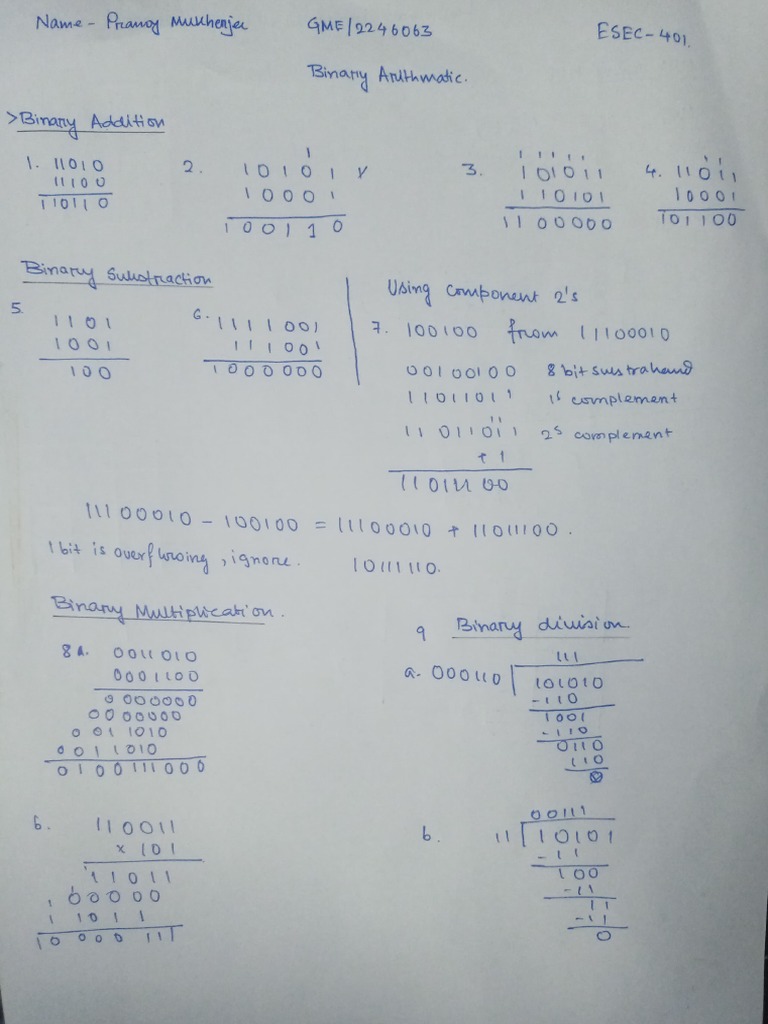 Name - Pranoy Mukherjee GME/2246063 ESEC-401.
Binary Arithmatic.
>Binary Addition
1. 11010
11100
110110
2. 1
10101
10001
100110
3. 11111
101011
110101
1100000
4. 11
11011
10001
101100
Binary Substraction
5. 1101
1001
100
6. 1111001
111001
1000000
Using component 2's
7. 100100 from 11100010
00100100 8 bit sustrahand
11011011 1s complement
11
11011011 2s complement
+1
11011100
11100010 - 100100 = 11100010 + 11011100.
1 bit is overflwoing, ignore. 10111110.
Binary Multiplication.
8 a. 0011010
0001100
0000000
0000000
0011010
0011010
0100111000
b. 110011
x 101
11011
00000
11011
10000111
9 Binary division.
111
a. 000110 101010
-110
1001
-110
0110
110
0
00111
b. 11 10101
-11
100
-11
11
-11
0